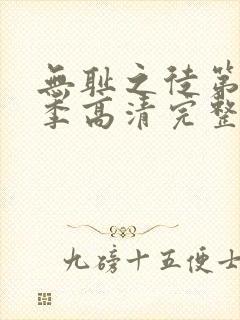 無耻之徒第
季高清完整
九磅十五便士